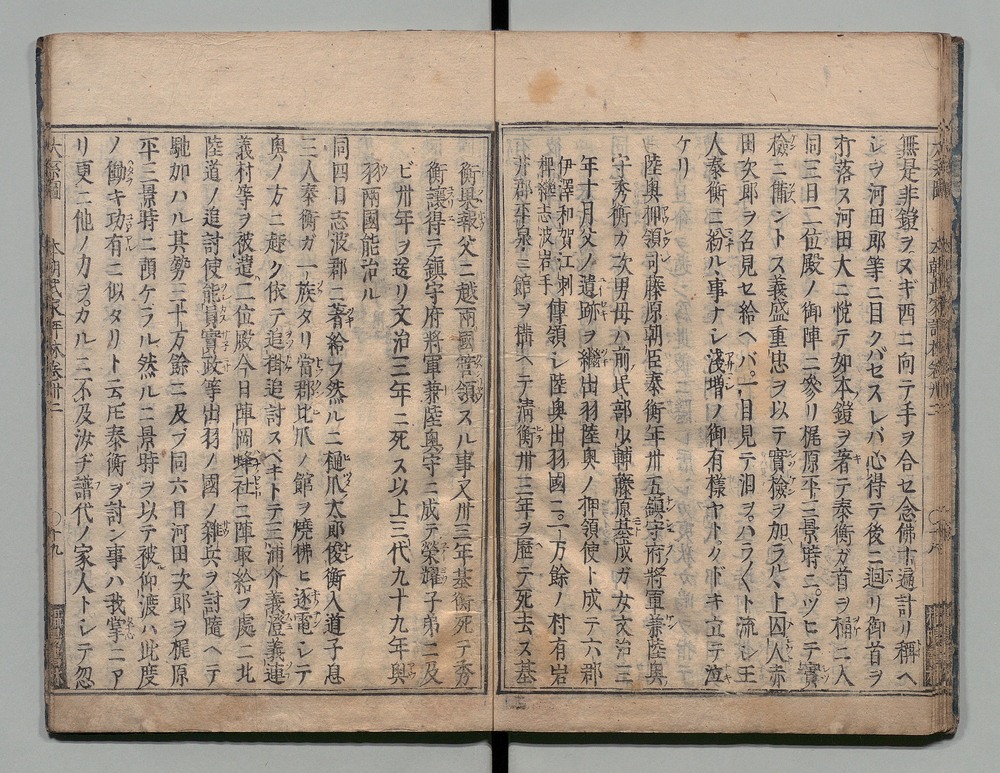 無是非鎧ヲヌギ西ニ向テ手ヲ合セ念佛百遍計リ稱ヘ
シヲ河田郎等ニ目クバセスレバ心得テ後ニ廻リ御首ヲ
打落ス河田大ニ悅テ如本鎧ヲ著テ泰衡ガ首ヲ桶ニ入
同三日二位殿ノ御陣ニ參リ梶原平三景時ニツヒテ實
檢ニ備ントス義盛重忠ヲ以テ實檢ヲ加ラル上囚人赤
田次郎ヲ名見セ給ヘバ一目見テ泪ヲハラ〳〵ト流シ王
人泰衡ニ紛ル事ナシ淺增ノ御有樣ヤトクドキ立テ泣
ケリ
陸奥押領司藤原朝臣泰衡年卅五鎮守府將軍兼陸奥
守秀衡カ二次男母ハ前民部少輔藤原基成ガ女文治三
年十月父ノ遺跡ヲ繼出羽陸奥ノ押領使ト成テ六郡
伊澤和賀江刺
稗縫志波岩手
傳領シ陸奥出羽國ニ一万餘ノ村有岩
井郡平泉ニ館ヲ構ヘテ淸衡卅三年ヲ歷テ死去ス基
衡果報父ニ越兩國管領スル事又卅三年基衡死テ秀
衡讓得テ鎮守府將軍兼陸奥守ニ成テ榮耀子弟ニ及
ビ卅年ヲ送リ文治三年ニ死ス以上三代九十九年奥
羽兩國能治ル
同四日志波郡ニ著給フ然ルニ樋爪太郎俊衡入道子息
三人泰衡ガ一族タリ當郡比爪ノ館ヲ燒拂ヒ逐電シテ
奥ノ方ニ赴ク依テ追掛追討スベキトテ三浦介義澄義連
義村等ヲ被遣二位殿今日陣岡蜂社ニ陣取給フ處ニ北
陸道ノ追討使能員實政等出羽ノ國ノ雜兵ヲ討隨ヘテ
馳加ハル其勢二十万餘ニ及ブ同六日河田次郎ヲ梶原
平三景時ニ預ケラル然ルニ景時ヲ以テ被仰渡ハ此度
ノ働キ功有ニ似タリト云𪜈泰衡ヲ討ン事ハ我掌ニア
リ更ニ他ノ力ヲカルニ不及汝ヂ譜代ノ家人トシテ忽